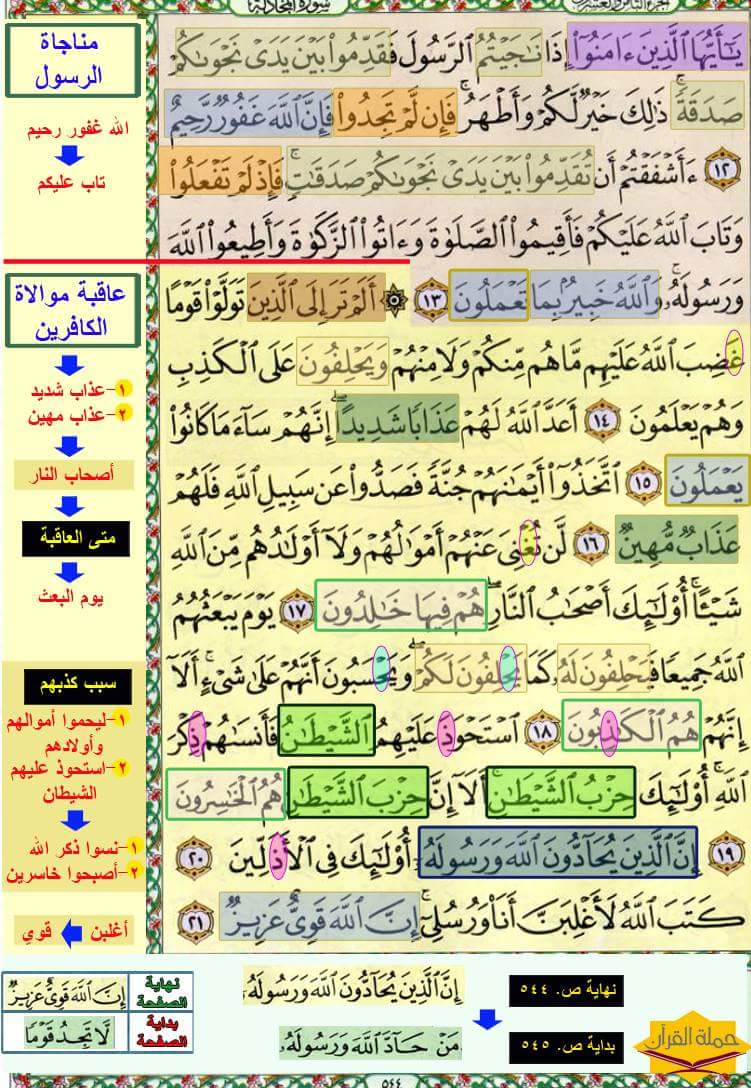 سورة المجادلة
الجزء الثامن والعشرون
مناجاة
الرسول
الله غفور رحيم
تاب عليكم
يَٰٓأَيُّهَا ٱلَّذِينَ ءَامَنُوٓا۟ إِذَا نَٰجَيْتُمُ ٱلرَّسُولَ فَقَدِّمُوا۟ بَيْنَ يَدَىْ نَجْوَىٰكُمْ
صَدَقَةً ۚ ذَٰلِكَ خَيْرٌ لَّكُمْ وَأَطْهَرُ ۚ فَإِن لَّمْ تَجِدُوا۟ فَإِنَّ ٱللَّهَ غَفُورٌ رَّحِيمٌ
١٢ ءَأَشْفَقْتُمْ أَن تُقَدِّمُوا۟ بَيْنَ يَدَىْ نَجْوَىٰكُمْ صَدَقَٰتٍ ۚ فَإِذْ لَمْ تَفْعَلُوا۟
وَتَابَ ٱللَّهُ عَلَيْكُمْ فَأَقِيمُوا۟ ٱلصَّلَوٰةَ وَءَاتُوا۟ ٱلزَّكَوٰةَ وَأَطِيعُوا۟ ٱللَّهَ
وَرَسُولَهُۥ ۚ وَٱللَّهُ خَبِيرٌۢ بِمَا تَعْمَلُونَ ١٣ ۞ أَلَمْ تَرَ إِلَى ٱلَّذِينَ تَوَلَّوْا۟ قَوْمًا
غَضِبَ ٱللَّهُ عَلَيْهِم مَّا هُم مِّنكُمْ وَلَا مِنْهُمْ وَيَحْلِفُونَ عَلَى ٱلْكَذِبِ
وَهُمْ يَعْلَمُونَ ١٤ أَعَدَّ ٱللَّهُ لَهُمْ عَذَابًا شَدِيدًا ۖ إِنَّهُمْ سَآءَ مَا كَانُوا۟
يَعْمَلُونَ ١٥ ٱتَّخَذُوٓا۟ أَيْمَٰنَهُمْ جُنَّةً فَصَدُّوا۟ عَن سَبِيلِ ٱللَّهِ فَلَهُمْ
عَذَابٌ مُّهِينٌ ١٦ لَّن تُغْنِىَ عَنْهُمْ أَمْوَٰلُهُمْ وَلَآ أَوْلَٰدُهُم مِّنَ ٱللَّهِ
شَيْـًٔا ۚ أُو۟لَٰٓئِكَ أَصْحَٰبُ ٱلنَّارِ ۖ هُمْ فِيهَا خَٰلِدُونَ ١٧ يَوْمَ يَبْعَثُهُمُ
ٱللَّهُ جَمِيعًا فَيَحْلِفُونَ لَهُۥ كَمَا يَحْلِفُونَ لَكُمْ ۖ وَيَحْسَبُونَ أَنَّهُمْ عَلَىٰ شَىْءٍ ۚ أَلَآ
إِنَّهُمْ هُمُ ٱلْكَٰذِبُونَ ١٨ ٱسْتَحْوَذَ عَلَيْهِمُ ٱلشَّيْطَٰنُ فَأَنسَىٰهُمْ ذِكْرَ
ٱللَّهِ ۚ أُو۟لَٰٓئِكَ حِزْبُ ٱلشَّيْطَٰنِ ۚ أَلَآ إِنَّ حِزْبَ ٱلشَّيْطَٰنِ هُمُ ٱلْخَٰسِرُونَ
١٩ إِنَّ ٱلَّذِينَ يُحَآدُّونَ ٱللَّهَ وَرَسُولَهُۥٓ أُو۟لَٰٓئِكَ فِى ٱلْأَذَلِّينَ ٢٠
كَتَبَ ٱللَّهُ لَأَغْلِبَنَّ أَنَا۠ وَرُسُلِىٓ ۚ إِنَّ ٱللَّهَ قَوِىٌّ عَزِيزٌ ٢١
عاقبة موالاة
الكافرين
١-عذاب شديد
٢-عذاب مهين
أصحاب النار
متى العاقبة
يوم البعث
سبب كذبهم
١-ليحموا أموالهم
وأولادهم
٢-استحوذ عليهم
الشيطان
١-نسوا ذكر الله
٢-أصبحوا خاسرين
أغلبن قوي
نهاية ص. ٥٤٤
إِنَّ ٱلَّذِينَ يُحَآدُّونَ ٱللَّهَ وَرَسُولَهُۥٓ
بداية ص. ٥٤٥
مَنْ حَآدَّ ٱللَّهَ وَرَسُولَهُۥ
نهاية
الصفحة
إِنَّ ٱللَّهَ قَوِىٌّ عَزِيزٌ
بداية
الصفحة
لَّا تَجِدُ قَوْمًا
حملة القرآن
٥٤٤